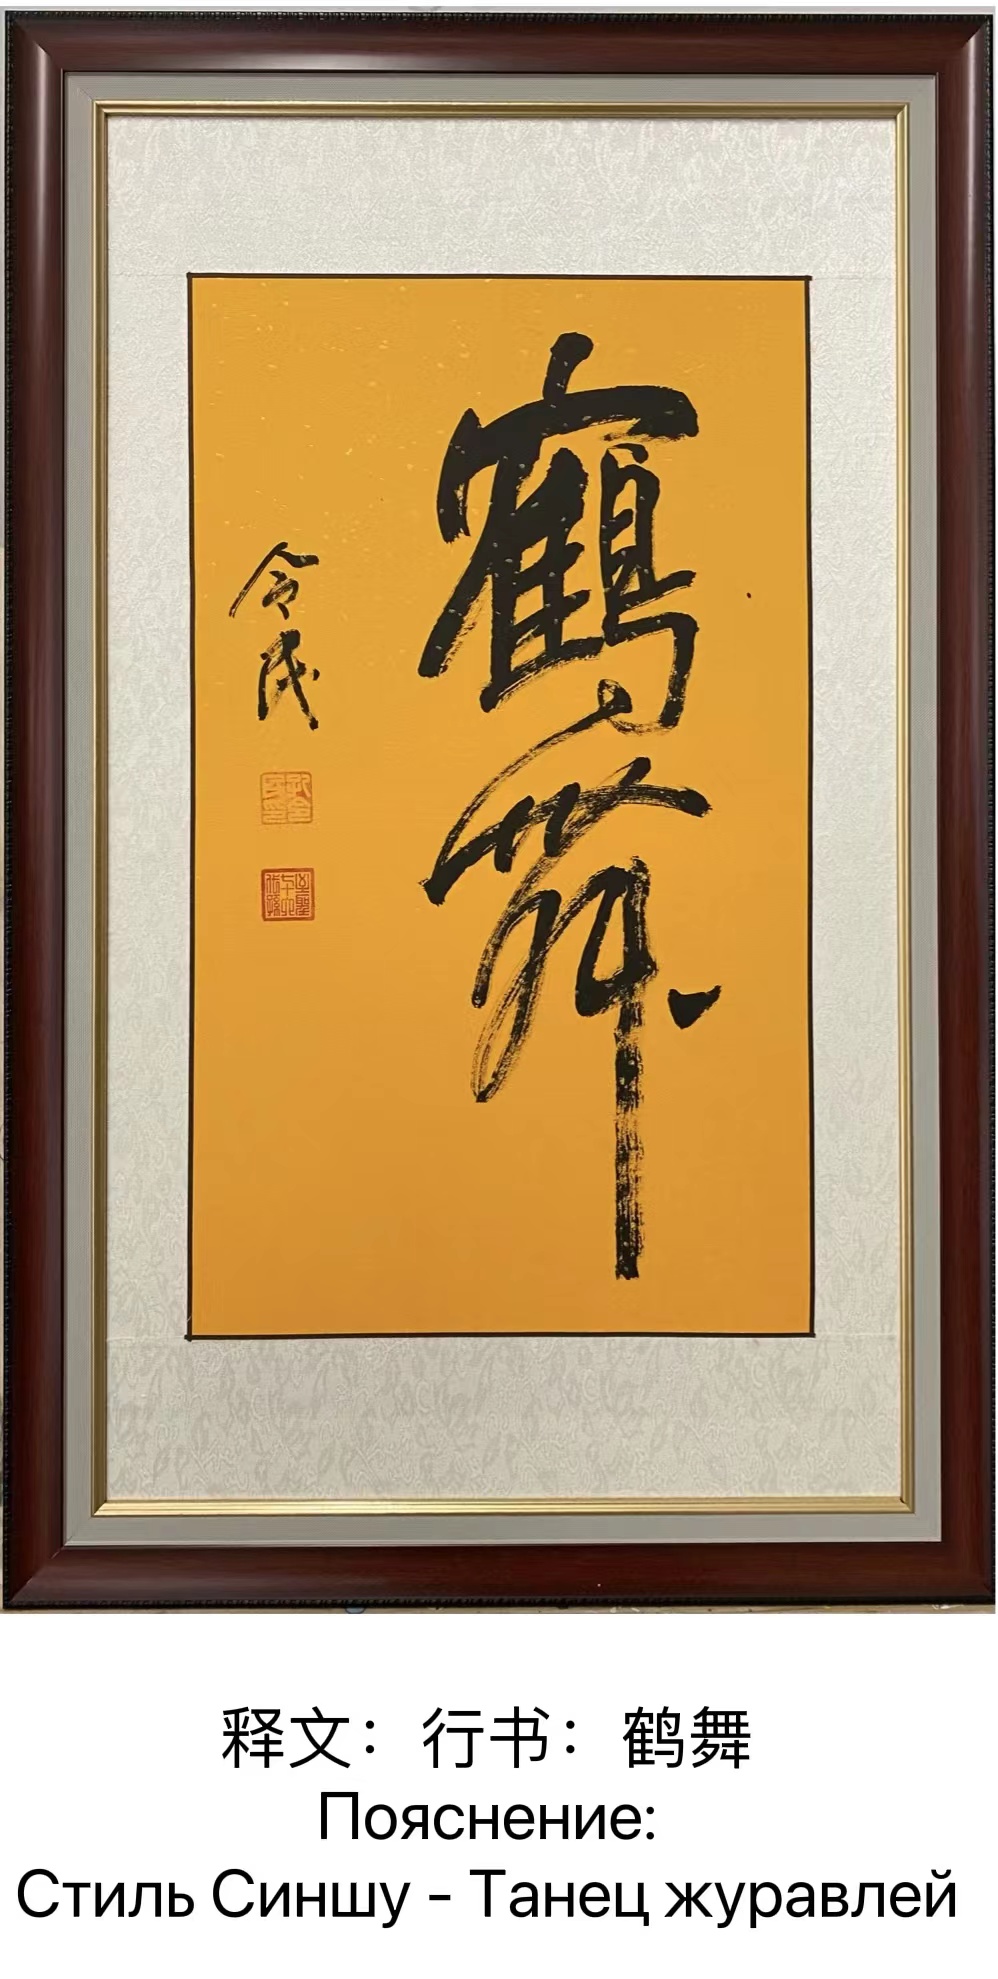 鶴舞
令民
释文：行书：鹤舞
Пояснение:
Стиль Синшу - Танец журавлей